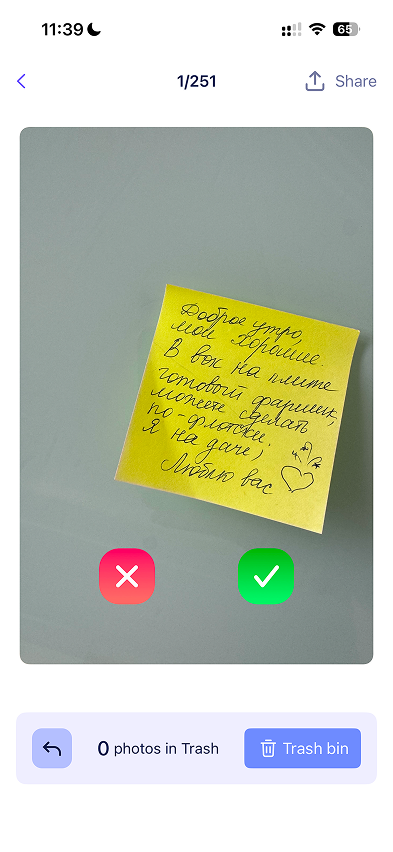 11:39
65
1/251
Share
Доброе утро,
мои хорошие.
В вок на плите
готовый фаршик,
можете сделать
по-флотски.
Я на даче,
Люблю вас
0 photos in Trash
Trash bin